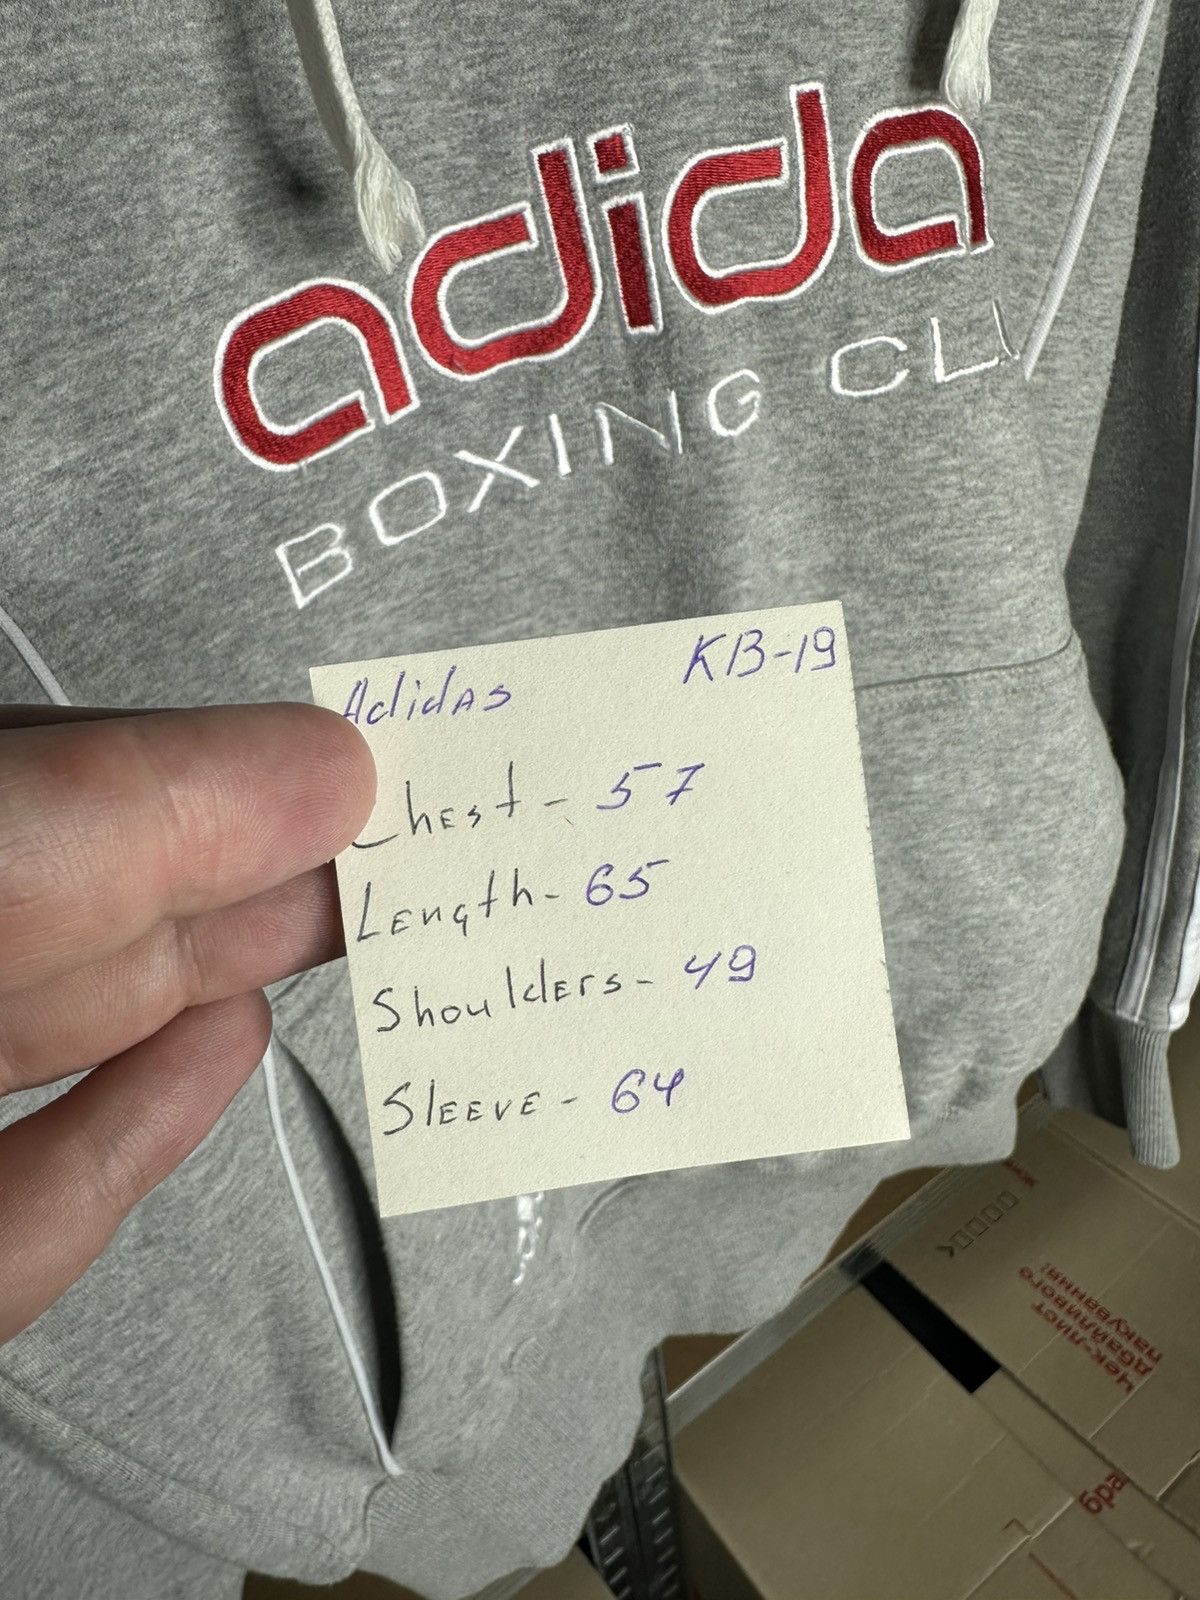 adida
BOXING CLU
Adidas KB-19
Chest - 57
Length - 65
Shoulders - 49
Sleeve - 64
Чек-лист
дбайливого
пакування: